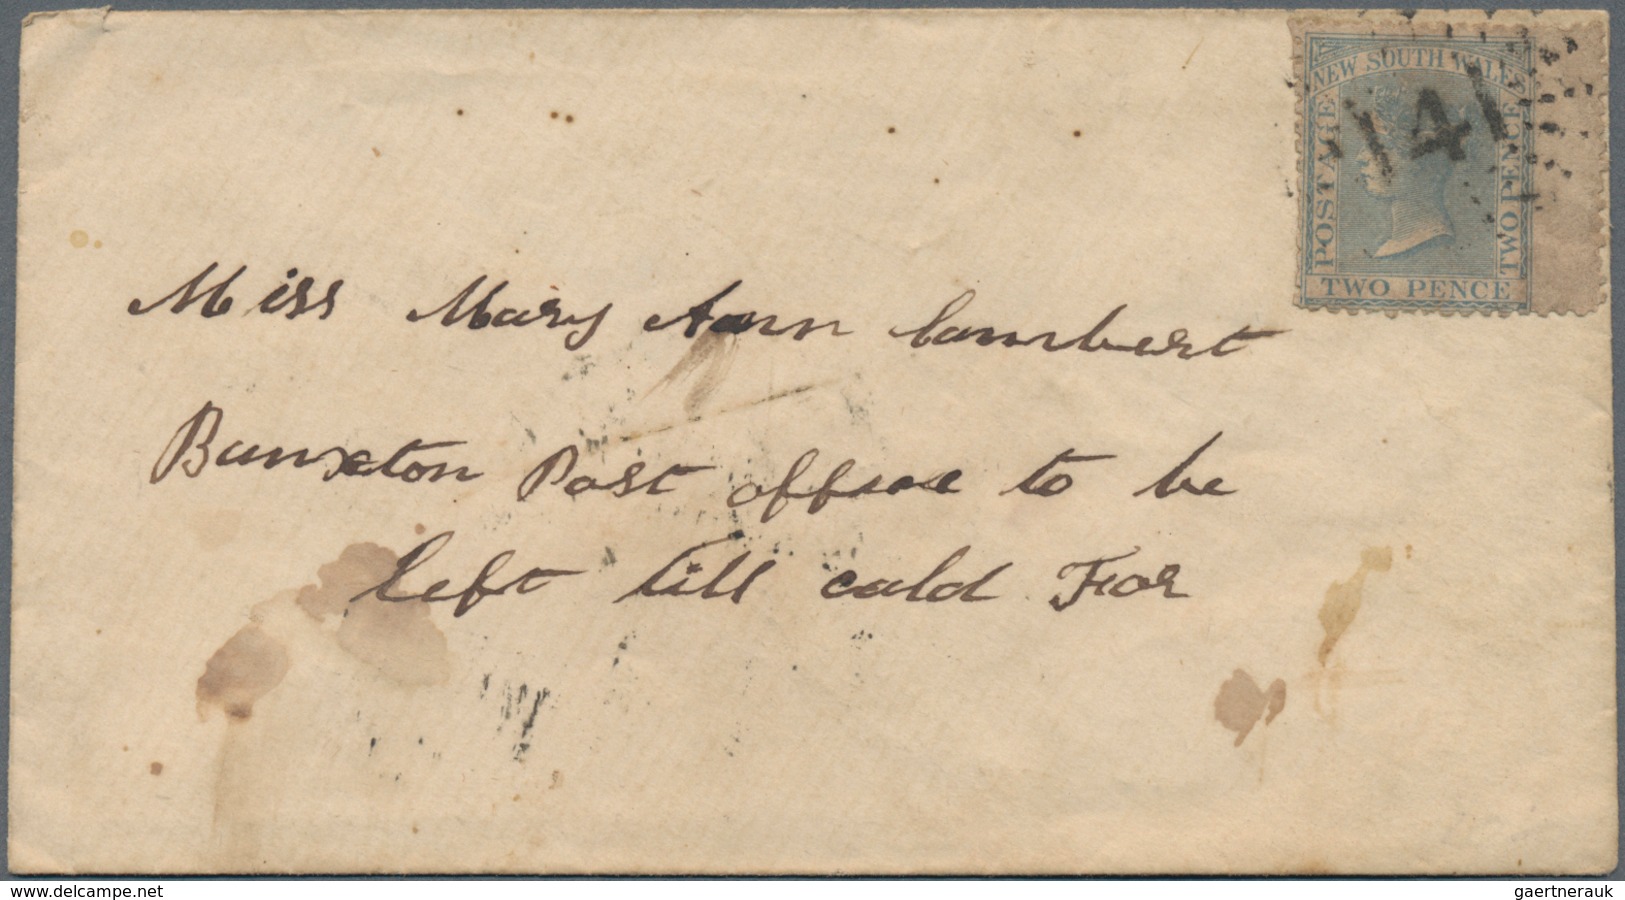 NEW SOUTH WALES
POSTAGE
TWO PENCE
TWO PENCE
Miss Mary Ann Lambert
Bunxton Post offece to be
left till cald For
www.delcampe.net
gaertnerauk